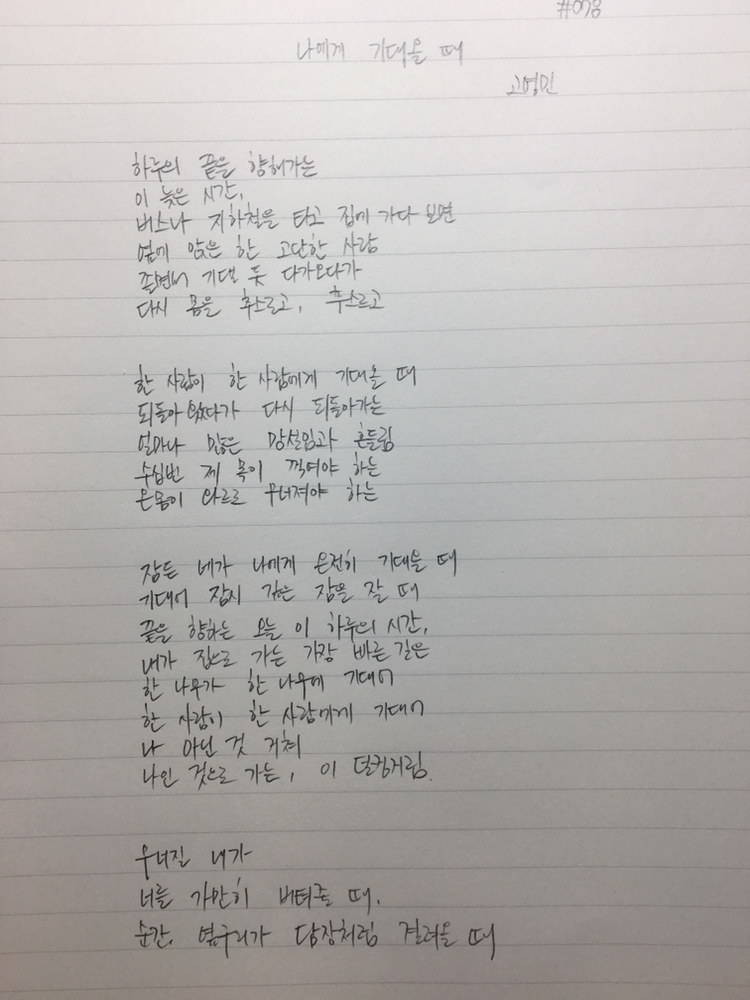 #078
나에게 기대올 때
고영민
하루의 끝을 향해가는
이 늦은 시간,
버스나 지하철을 타고 집에 가다 보면
옆에 앉은 한 고단한 사람
졸면서 기댈 듯 다가오다가
다시 몸을 추스르고, 추스르고
한 사람이 한 사람에게 기대올 때
되돌아왔다가 다시 되돌아가는
얼마나 많은 망설임과 흔들림
수십번 제 목이 꺾여야 하는
온몸이 와르르 무너져야 하는
잠든 네가 나에게 온전히 기대올 때
기대어 잠시 깊은 잠을 잘 때
끝을 향하는 오늘 이 하루의 시간,
내가 집으로 가는 가장 빠른 길은
한 나무가 한 나무에 기대어
한 사람이 한 사람에게 기대어
나 아닌 것 거쳐
나인 것으로 가는, 이 덜컹거림.
무너질 내가
너를 가만히 버텨줄 때,
순간, 옆구리가 담장처럼 결려올 때